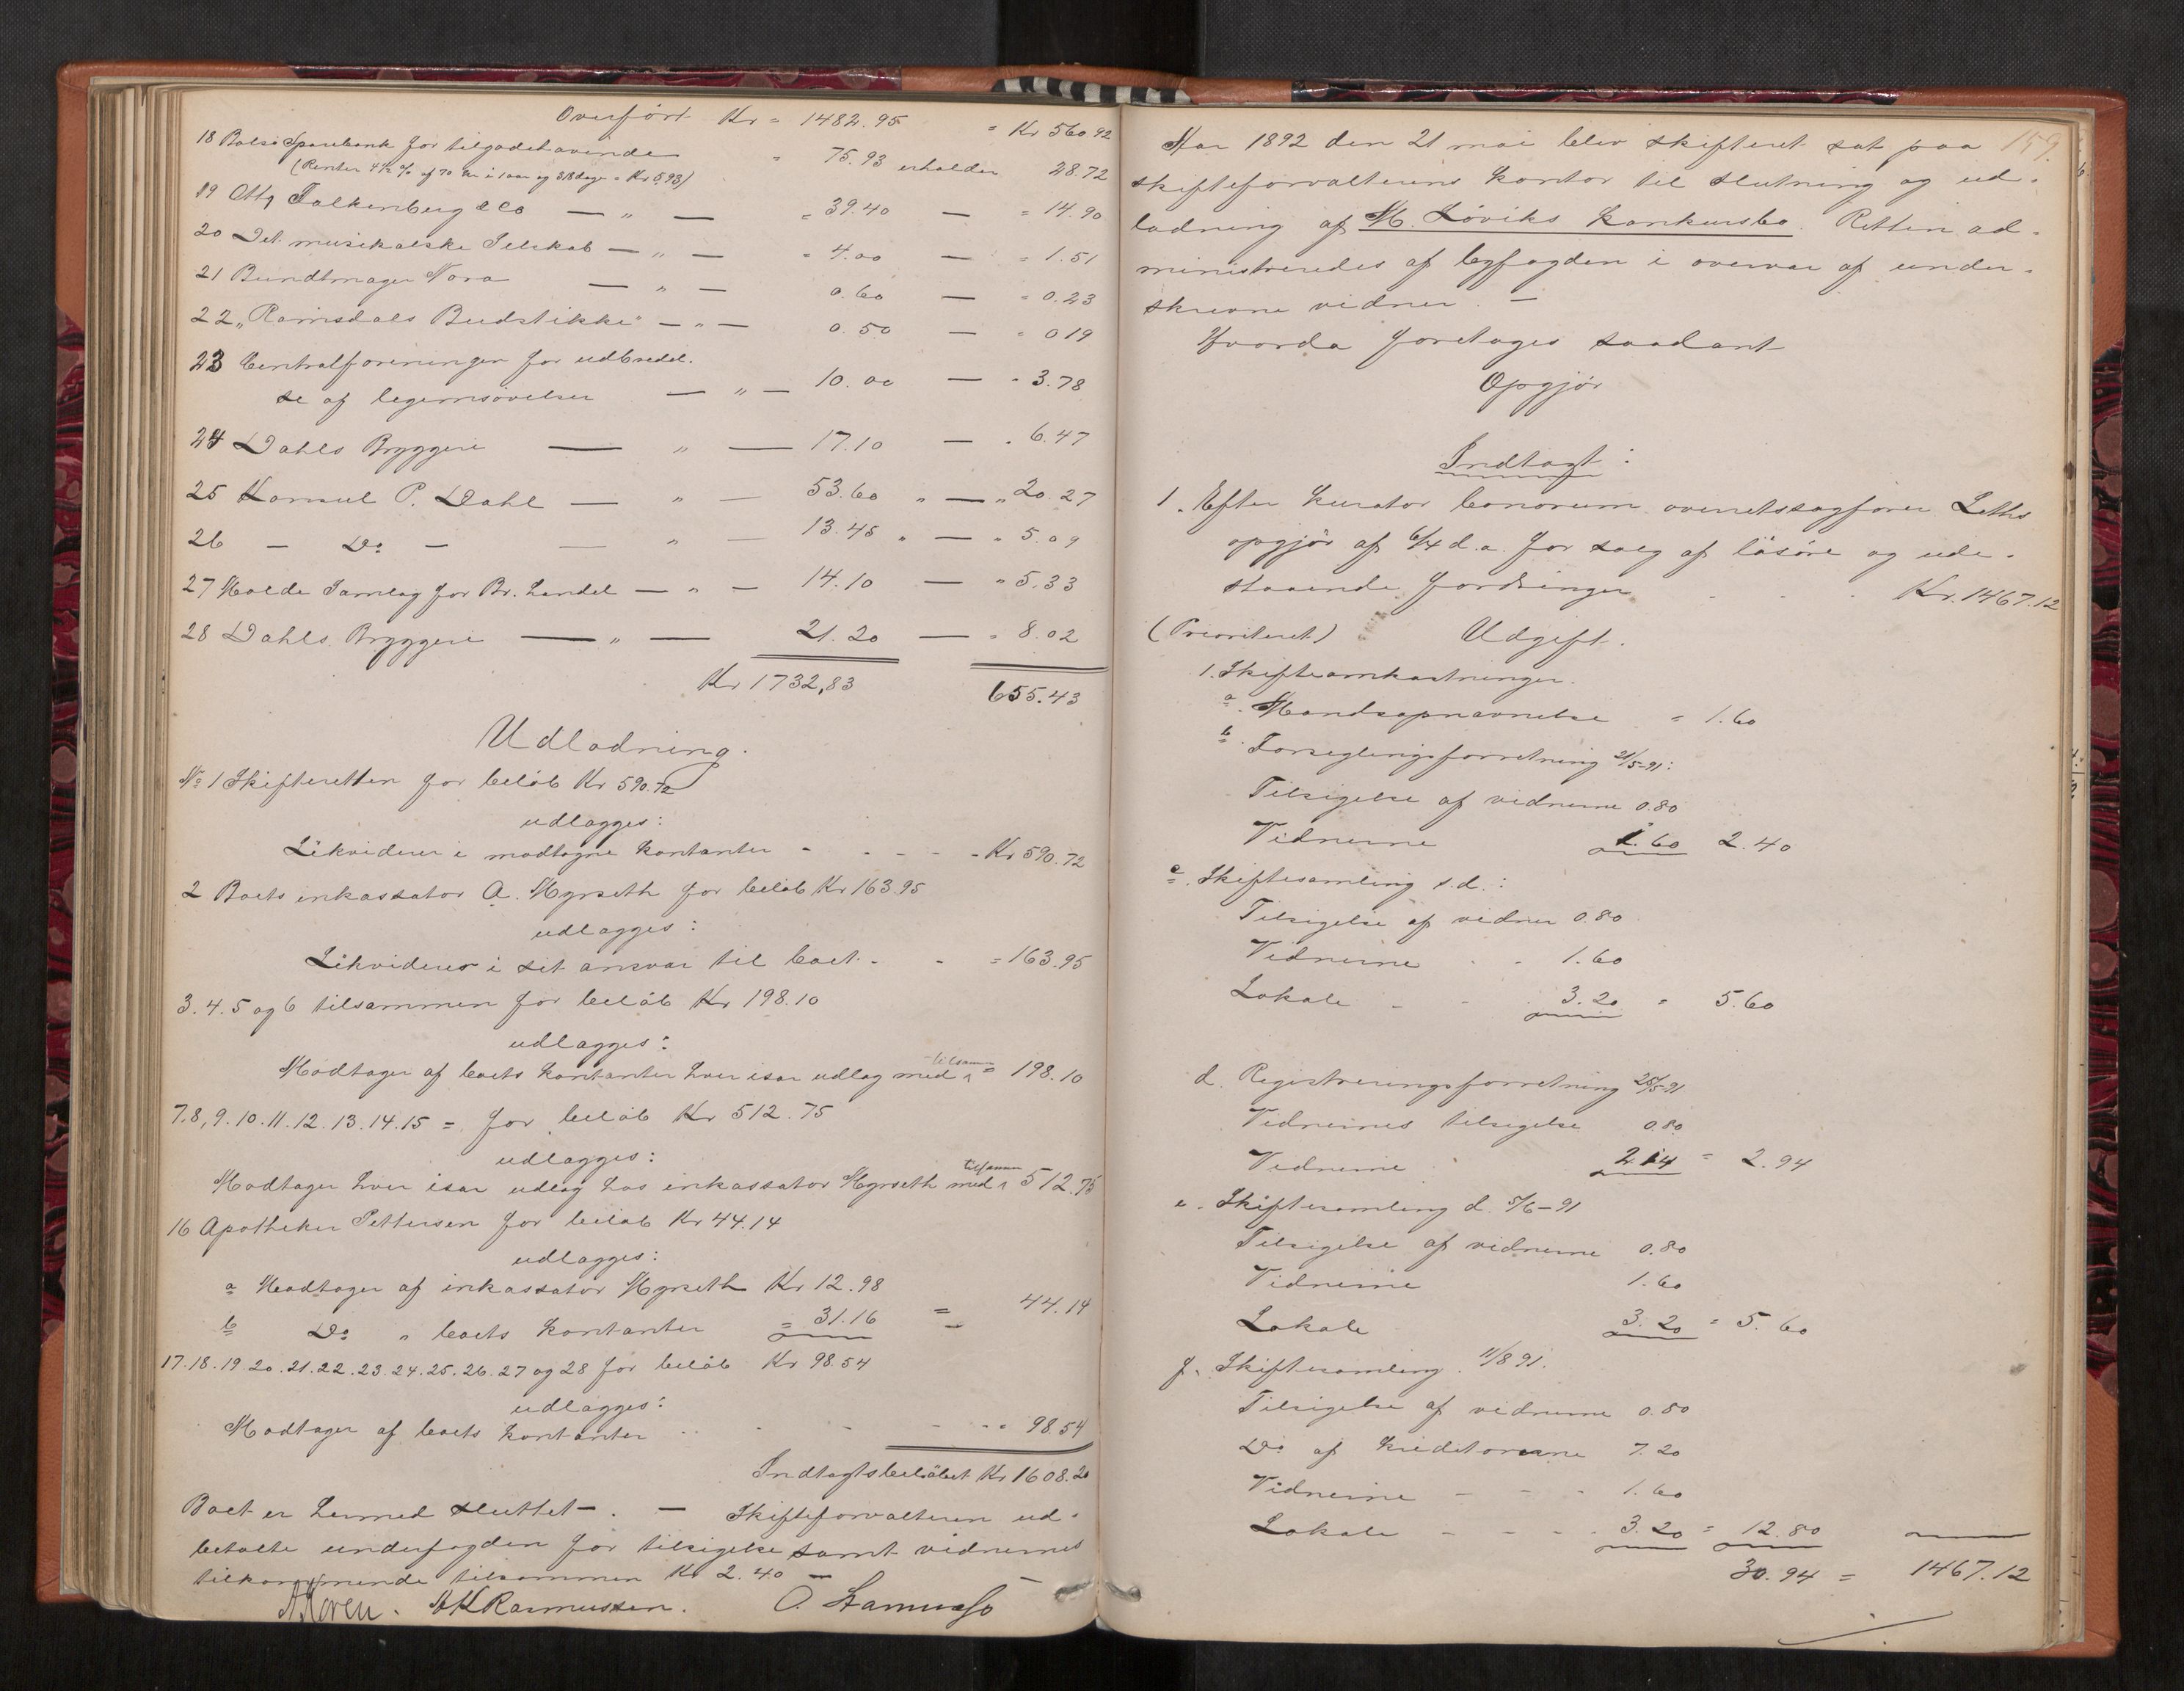 Overført Kr = 1482.95 = Kr 560.92
18 Bolsø Sparebank for tilgodehavende = 75.93 erholder 28.72
(Renter 4½ % af 70 Kr i 1 aar og 318 dage = Kr 5.93)
19 Otto Falkenberg & Co — " — = 39.40 — = 14.90
20 Det musikalske Selskab — " — = 4.00 — = 1.51
21 Bundtmager Nora — " — 0.60 — = 0.23
22 „Romsdals Budstikke" — " — 0.50 — = 0 19
23 Centralforeningen for udbredel-
se af legemsøvelser — " — 10.00 — = 3.78
24 Dahls Bryggeri — " — 17.10 — = 6.47
25 Konsul P. Dahl — " — 53.60 " — " 20.27
26 — Do — — " — 13.45 " — " 5.09
27 Molde Samlag for Br. handel — " — 14.10 — " 5.33
28 Dahls Bryggeri — " — 21.20 — = 8.02
Kr 1732,83 655.43
Udlodning.
No 1 Skifteretten for beløb Kr 590.72
udlægges:
Likviderer i modtagne kontanter - - - - - Kr 590.72
2 Boets inkassator A. Myrseth for beløb Kr 163.95
udlægges:
Likviderer i sit ansvar til boet - - = 163.95
3. 4. 5 og 6 tilsammen for beløb Kr 198.10
udlægges:
Modtager af boets kontanter hver især udlæg med tilsamm = 198.10
7.8, 9. 10. 11. 12. 13. 14. 15 = for beløb Kr 512.75
udlægges:
Modtager hver især udlæg hos inkassator Myrseth med tilsamm 512.75
16 Apotheker Pettersen for beløb Kr 44.14
udlægges:
a Modtager af inkassator Myrseth Kr 12.98
b Do " boets kontanter = 31.16 = 44.14
17. 18. 19. 20. 21. 22. 23. 24. 25. 26. 27 og 28 for beløb Kr 98.54
udlægges:
Modtager af boets kontanter - - - - - = 98.54
Indtægtsbeløbet Kr 1608.20
Boet er hermed sluttet —. — Skifteforvalteren ud-
betalte underfogden for tilsigelse samt vidnernes
tilkommende tilsammen Kr 2.40 —
N K Rasmussen. O.
159.
Aar 1892 den 21 mai blev skifteret sat paa
skifteforvalterens kontor til slutning og ud-
lodning af M. Løviks konkursbo. Retten ad-
ministreredes af byfogden i overvær af under-
skrevne vidner. —
Hvorda foretages saadant
Opgjør
Indtægt:
1. Efter kurator bonorum overretssagfører Leths
opgjør af 6/4 d.a. for salg af løsøre og ude-
staaende fordringer - - - Kr. 1467.12
(Prioriteret) Udgift.
1. Skifteomkostninger.
a. Mandsopnævnelse = 1.60
b. Forseglingsforretning 21/5-91:
Tilsigelse af vidnerne 0.80
Vidnerne 1.60 2.40
c. Skiftesamling s.d.:
Tilsigelse af vidner 0.80
Vidnerne - - 1.60
Lokale - - . 3.20 = 5.60
d. Registreringsforretning 25/5-91
Vidnernes tilsigelse 0.80
Vidnerne 2.14 = 2.94
e. Skiftesamling d. 5/6-91
Tilsigelse af vidnerne 0.80
Vidnerne 1.60
Lokale 3.20 = 5.60
f. Skiftesamling 11/8 91.
Tilsigelse af vidnerne 0.80
Do af kreditorerne 7.20
Vidnerne - - - 1.60
Lokale - - - - 3.20 = 12.80
30.94 = 1467.12